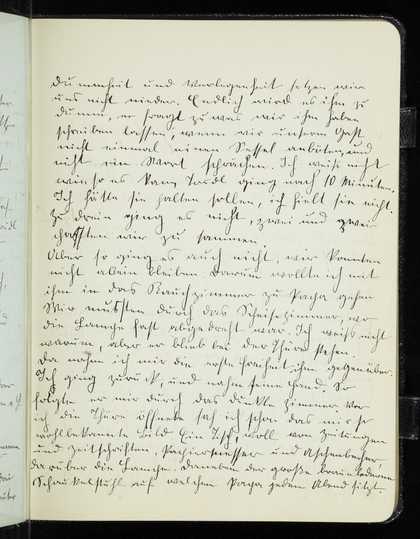 Dummheit und Verlegenheit setzen wir
uns nicht nieder. Endlich wird es ihm zu
dumm, er fragt zu was wir ihn haben
schreiben lassen, wenn wir unserm Gast
nicht einmal einen Sessel anböten und
nicht ein Wort sprächen. Ich weiß nicht
wieso es kam, ging nach 10 Minuten.
Ich hätte sie halten sollen, ich hielt sie nicht.
Zu drein ging es nicht, zwei und zwei
schafften wir zusammen.
Aber so ging es auch nicht, wir konnten
nicht allein bleiben darum wollte ich mit
ihm in das Rauchzimmer zu Papa gehen
Wir mußten durch das Speisezimmer, wo
die Lampe fast abgedreht war. Ich weiß nicht
warum, aber er blieb bei der Thüre stehen.
Da nahm ich mir die erste Freiheit ihm gegenüber.
Ich ging zurück, und nahm seine Hand. So
folgte er mir durch das dunkle Zimmer. Wie
ich die Thüre öffnete sah ich schon das mir so
wohlbekannte Bild. Ein Tisch voll von Zeitungen
und Zeitschriften, Papiermesser und Aschenbecher
darüber die Lampe. Daneben der große braunlederne
Schaukelstuhl auf welchem Papa jeden Abend sitzt.